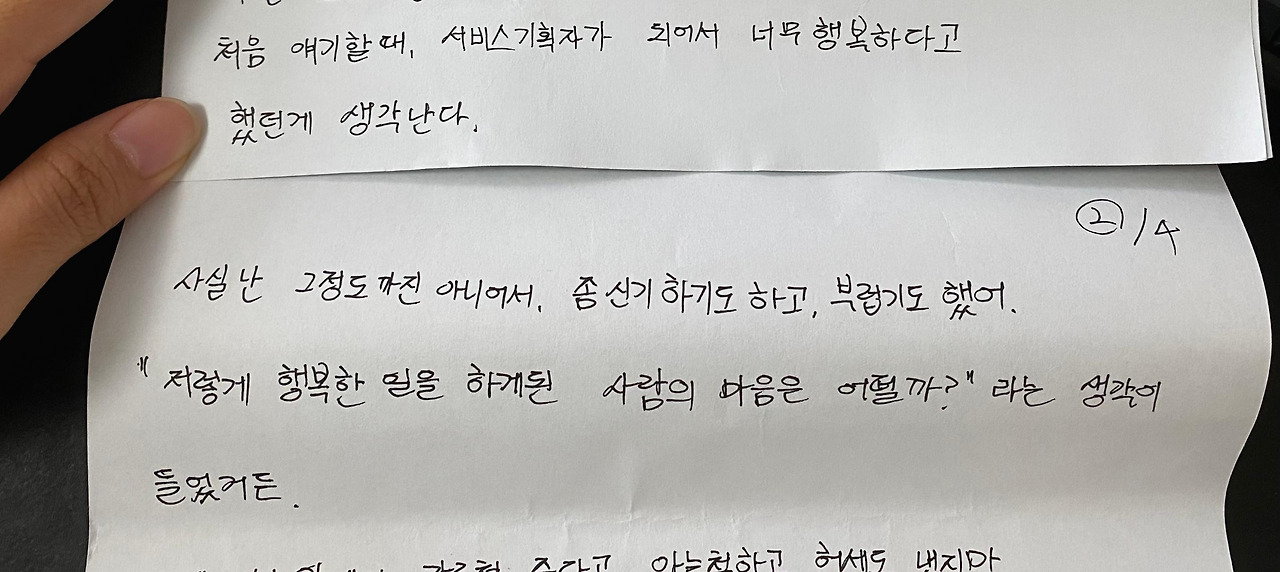 처음 얘기할때, 서비스기획자가 되어서 너무 행복하다고
했던게 생각난다.
②/4
사실 난 그정도까진 아니어서, 좀 신기하기도 하고, 부럽기도 했어.
"저렇게 행복한 일을 하게된 사람의 마음은 어떨까?" 라는 생각이
들었거든.
준다고 아는척하고 허세도 냈지마